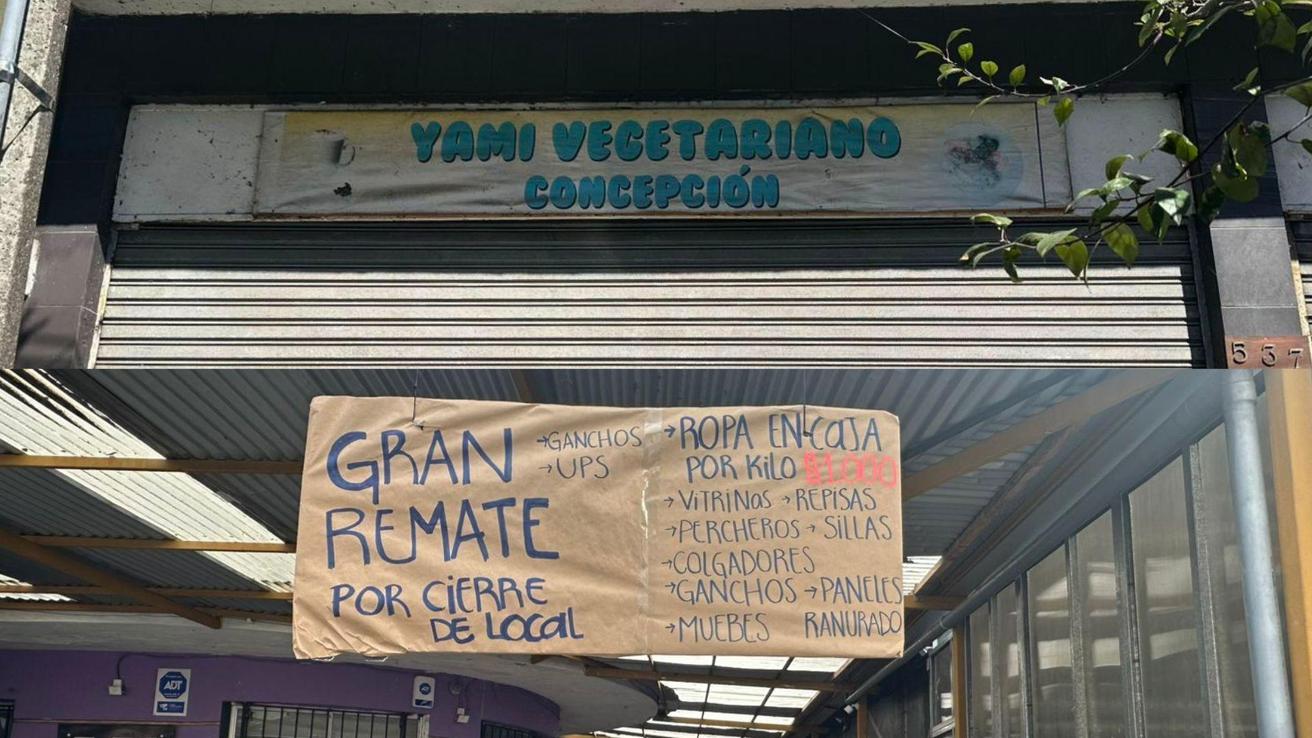 YAMI VEGETARIANO
CONCEPCIÓN
537
GRAN
REMATE
POR CIERRE
DE LOCAL
→GANCHOS
→UPS
→ROPA EN CAJA
POR KILO $1.000
→VITRINAS →REPISAS
→PERCHEROS →SILLAS
→COLGADORES
→GANCHOS →PANELES
→MUEBES RANURADO
ADT